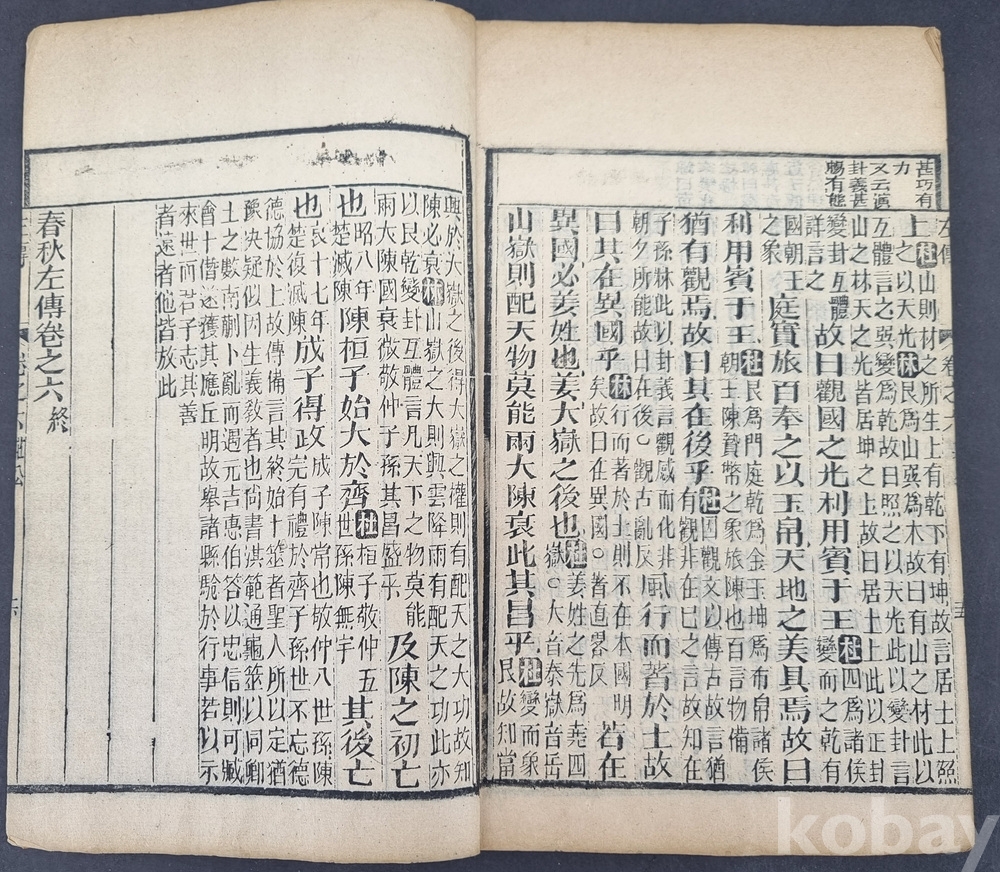 甚巧有
力
又云演
卦義甚
暢有態
左傳
卷之六
上杜山則材之所生上有乾下有坤故言居土上照
之以天光林艮爲山巽爲木故曰有山之材此以
互體言之巽變爲乾故曰照之以天光此以變卦言
山之林天之光皆居坤之土故曰居土上此以正卦
變卦互體
詳言之
故曰觀國之光利用賓于王杜四爲諸侯
變而之乾有
國朝王
之象
庭實旅百奉之以玉帛天地之美具焉故曰
利用賓于王杜艮爲門庭乾爲金玉坤爲布帛諸侯
朝王陳贄幣之象旅陳也百言物備
猶有觀焉故曰其在後乎杜因觀文以傳占故言猶
有觀非在己之言故知在
子孫林此以卦義言觀感而化非
朝夕所能故曰在後○觀古亂反
風行而著於土故
曰其在異國乎林行而著於土則不在本國明
矣故曰在異國○著直畧反
若在
異國必姜姓也姜大嶽之後也杜姜姓之先爲堯四
嶽○大音泰嶽音岳
山嶽則配天物莫能兩大陳衰此其昌乎杜變而象
艮故知當
興於大嶽之後得大嶽之權則有配天之大功故知
陳必衰林山嶽之大則興雲降雨有配天之功此亦
以艮乾變卦互體言凡天下之物莫能
兩大陳國衰微敬仲子孫其昌盛乎
及陳之初亡
也杜昭八年
楚滅陳
陳桓子始大於齊杜桓子敬仲五
世孫陳無宇
其後亡
也杜哀十七年
楚復滅陳
成子得政杜成子陳常也敬仲八世孫陳
完有禮於齊子孫世不忘德
德協於卜故傳備言其終始卜筮者聖人所以定猶
豫決疑似因生義敎者也尚書洪範通龜筮以同卿
土之數南蒯卜亂而遇元吉惠伯荅以忠信則可臧
會卜僭遂獲其應丘明故舉諸縣驗於行事若以示
來世而君子志其善
者遠者他皆放此
春秋左傳卷之六終
kobay